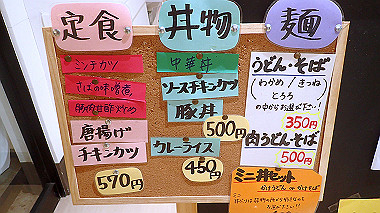 定食
ミンチカツ
さばの味噌煮
豚肉甘酢炒め
唐揚げ
チキンカツ
570円
丼物
中華丼
ソースチキンカツ
豚丼
500円
カレーライス
450円
麺
うどん・そば
(わかめ / きつね
とろろ
の中からお選びください!)
350円
肉うどん・そば
500円
ミニ丼セット
かけうどん or かけそば